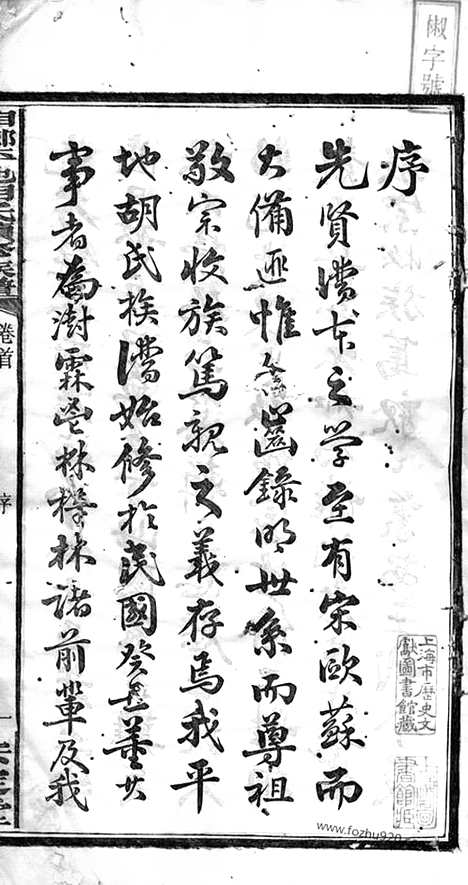 椒字號
序
先賢譜牒之學至有宋歐蘇而
大備匪惟登齒錄明世系而尊祖
敬宗收族篤親之義存焉我平
地胡氏族譜始修於民國癸丑董其
事者為澍霖 林 林諸前輩及我
卷首
序
一
上海市歷史文
獻圖書館藏
書館
www.fozhu920